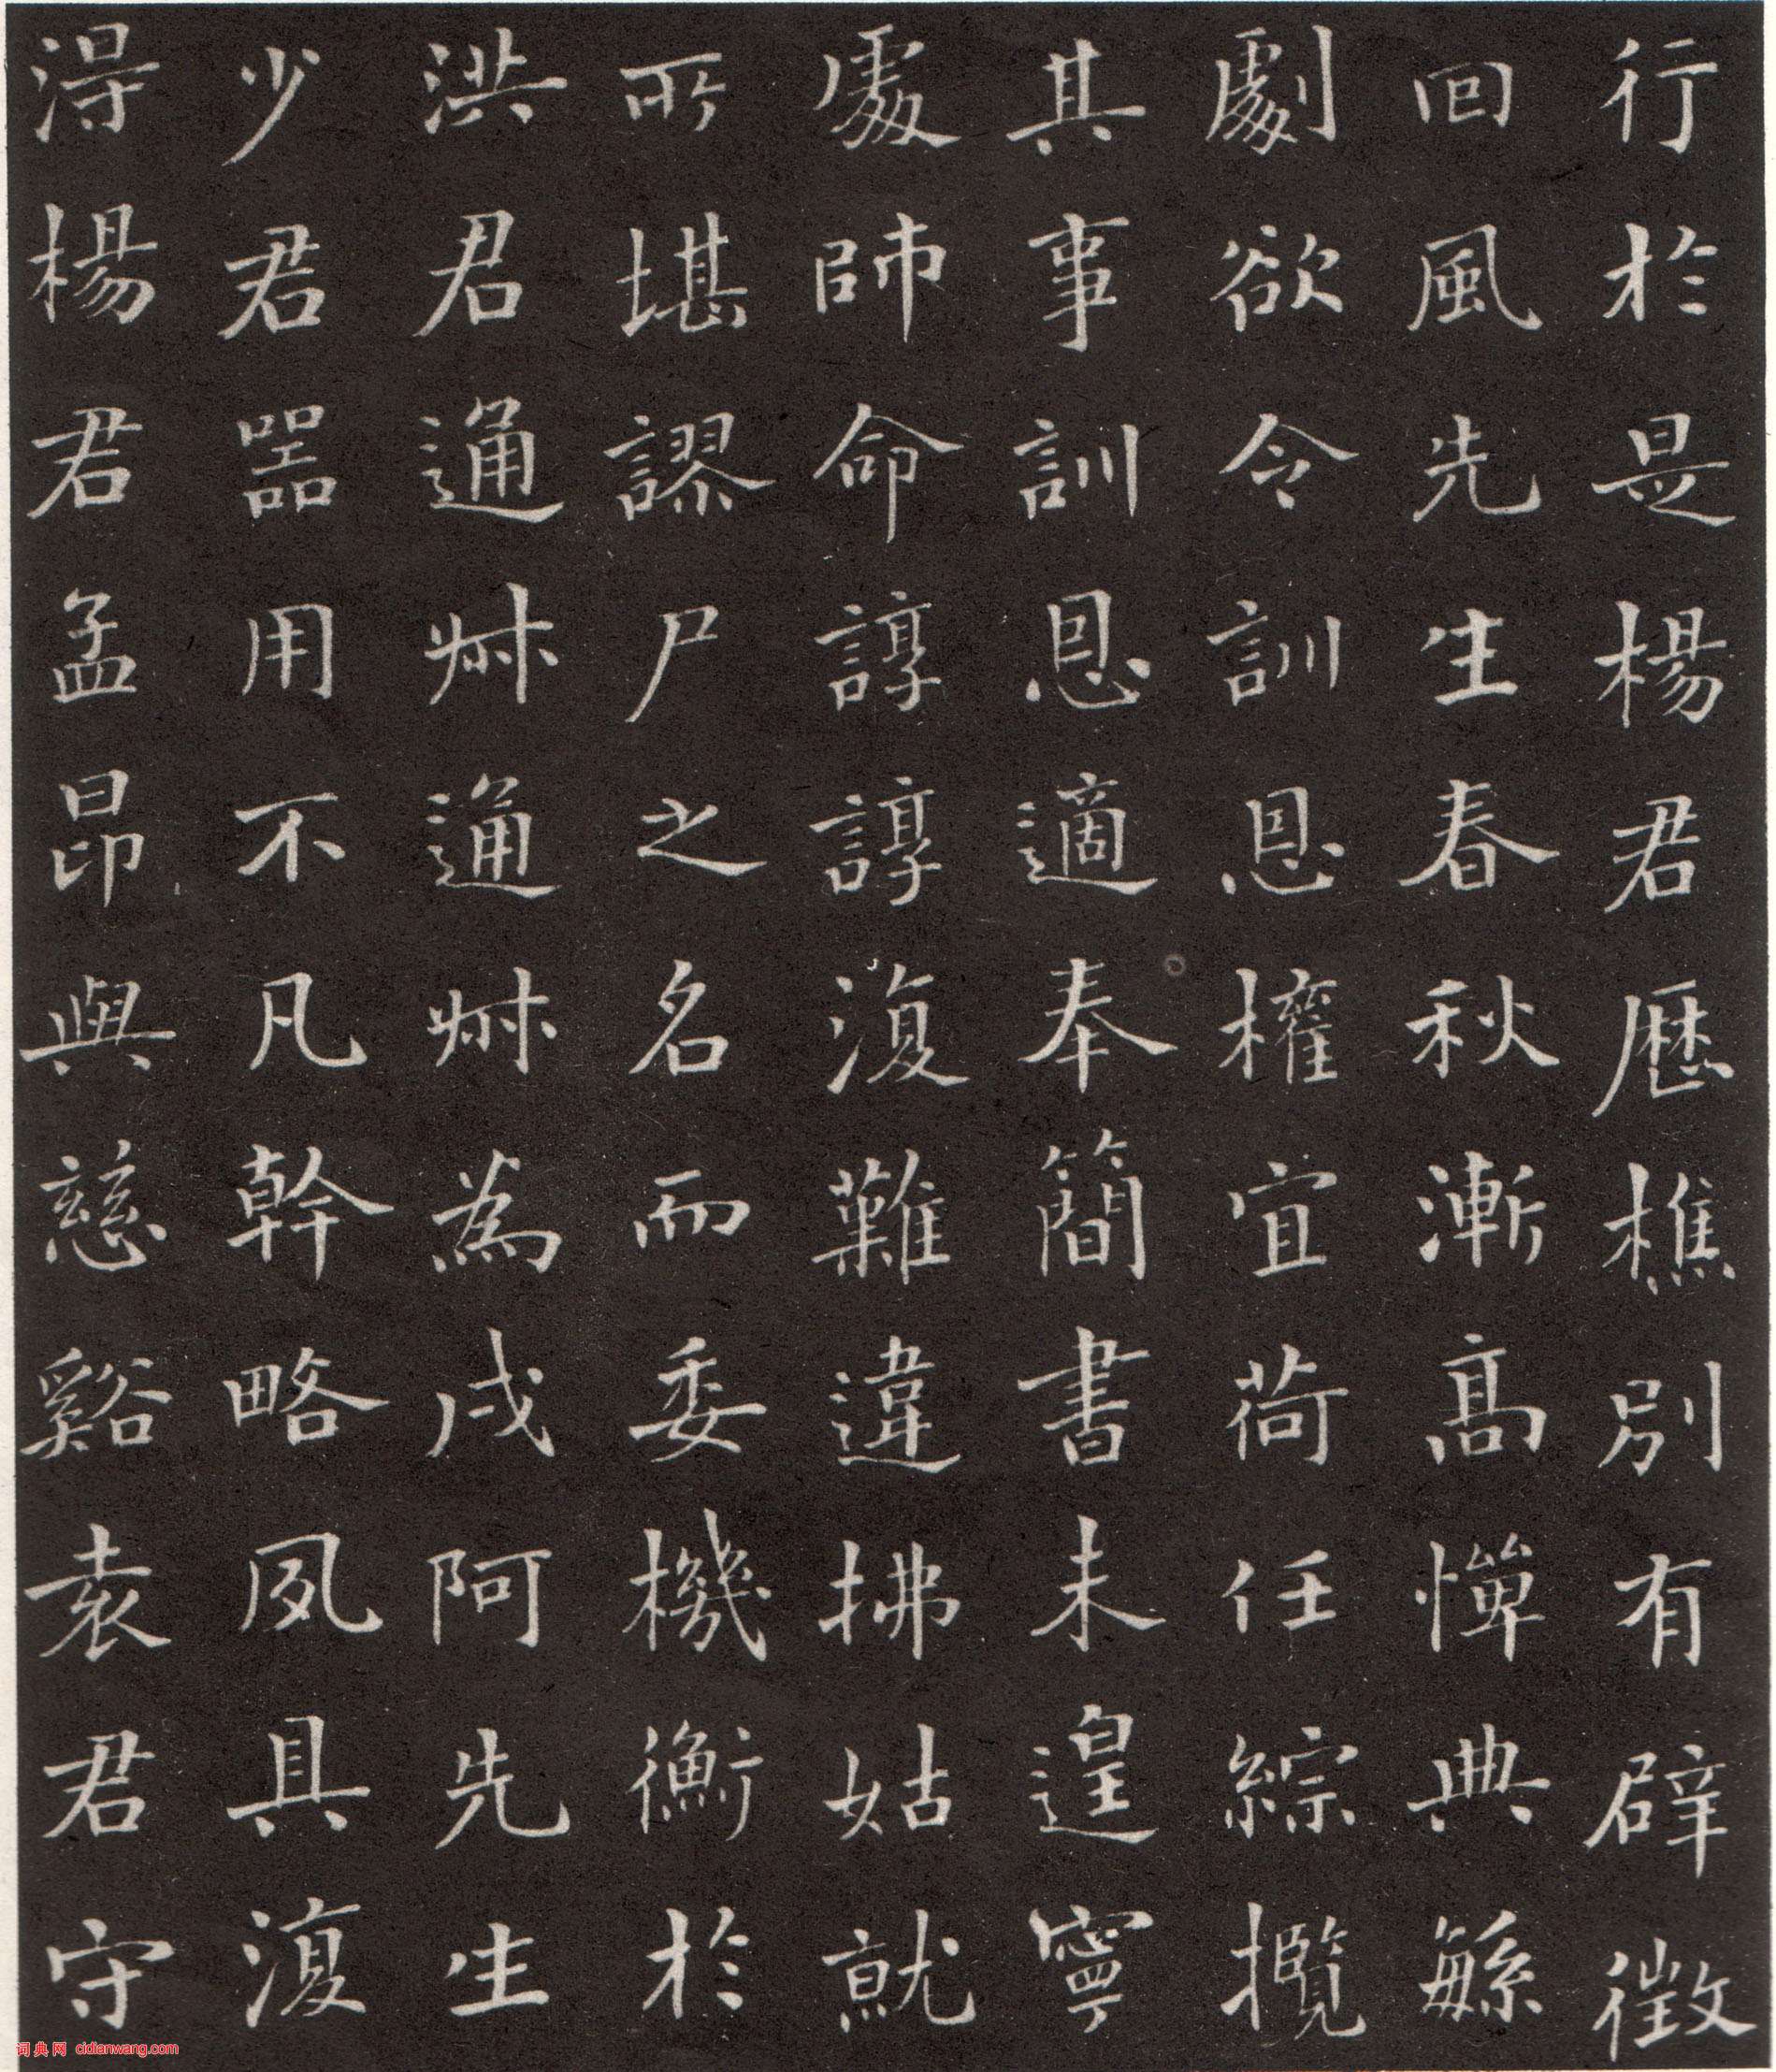 行於是楊君歷樵別有辟徵
回風先生春秋漸高憚典繇
劇欲令訓恩權宜荷任綜攬
其事訓恩適奉簡書未遑寧
處師命諄諄復難違拂姑就
所堪謬尸之名而委機衡於
洪君通舛通舛為戌阿先生
少君器用不凡幹略夙具復
得楊君孟昂與慈谿袁君守
词典网 cidianwang.com